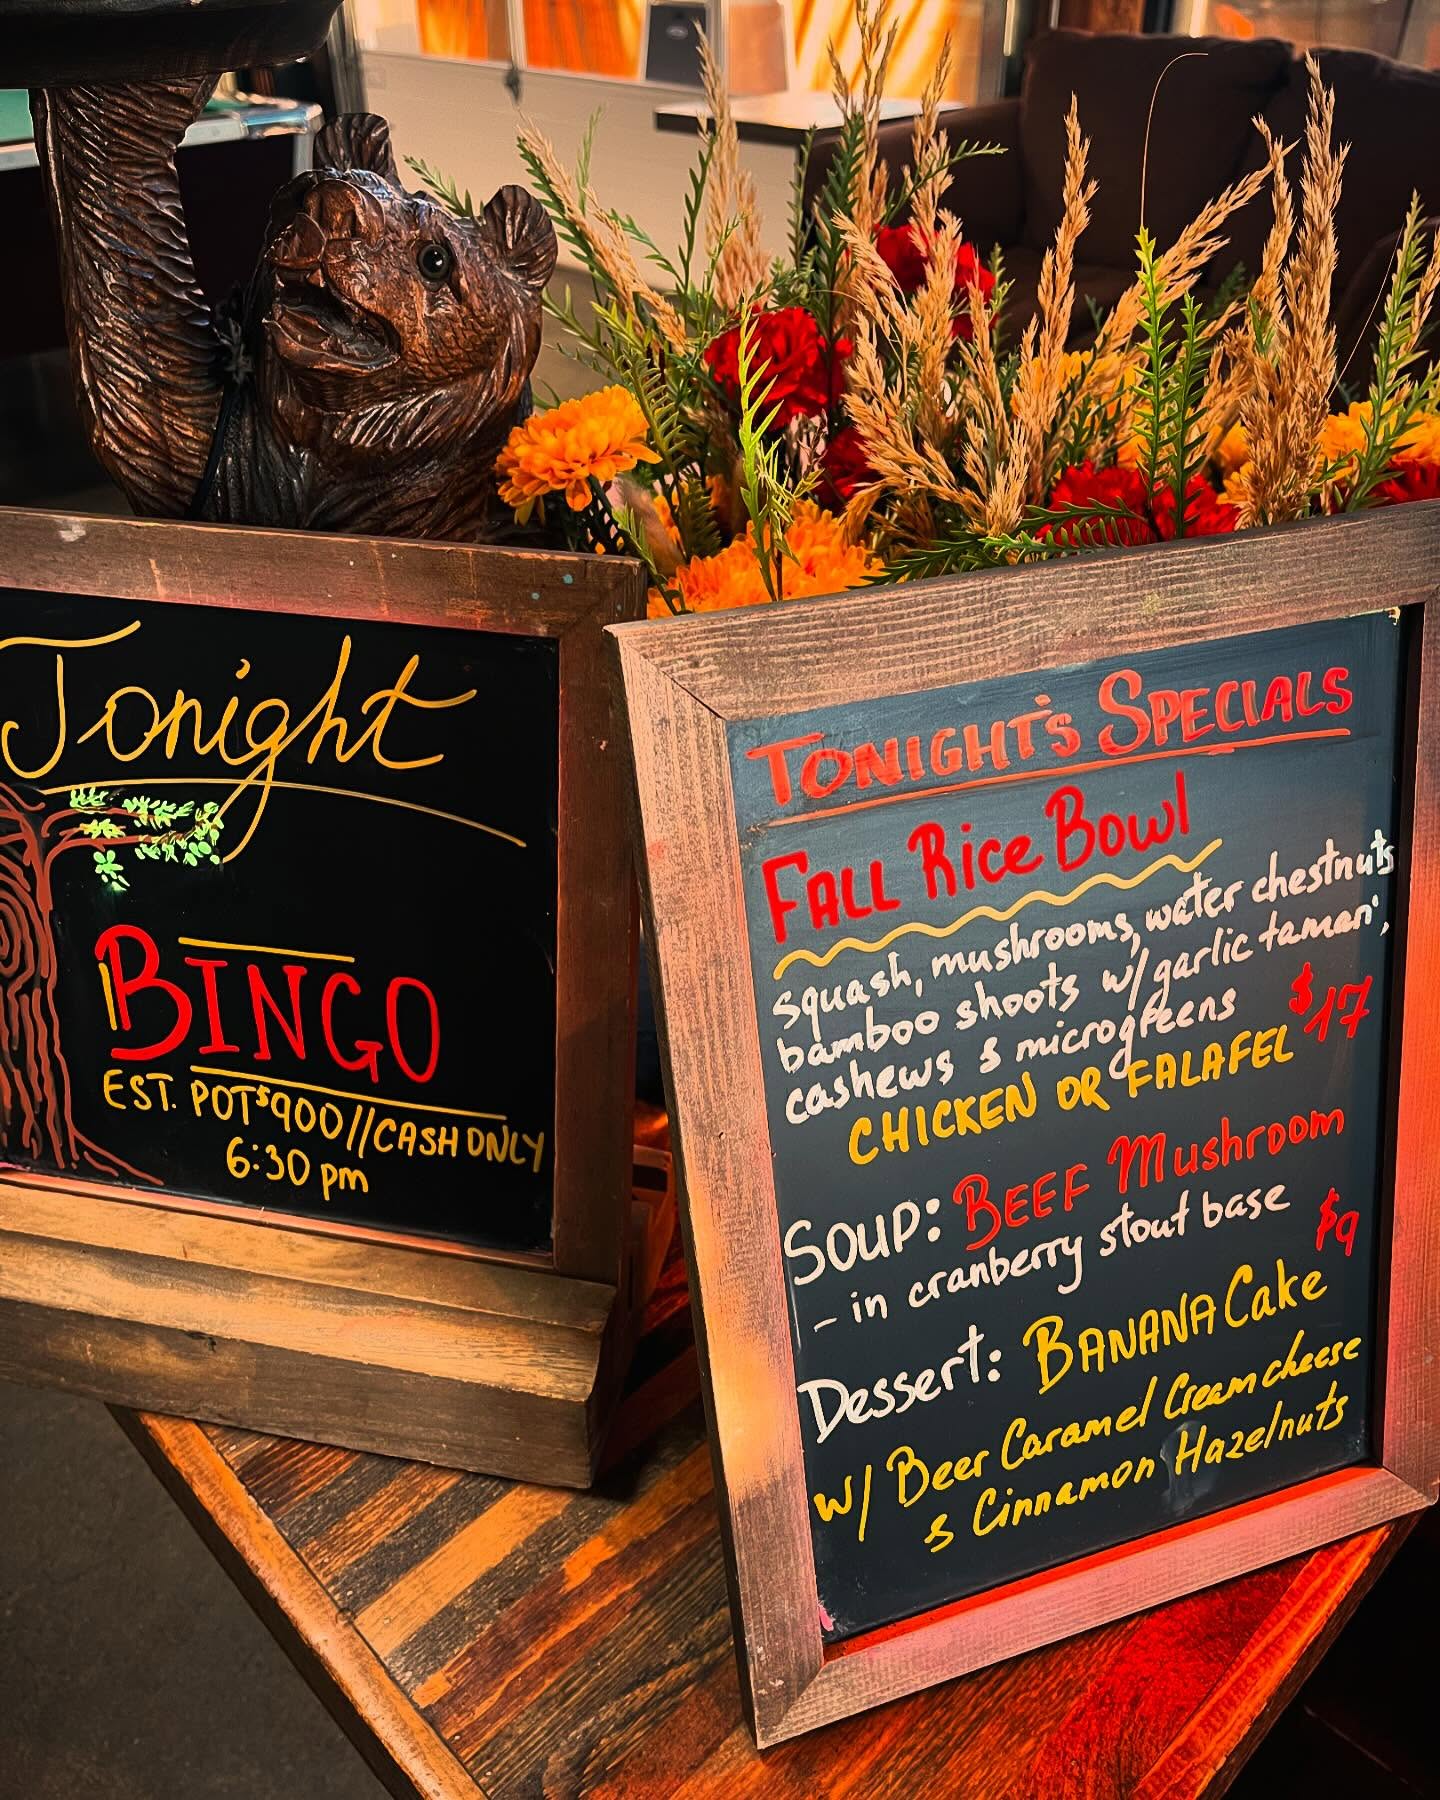 Tonight
BINGO
EST. POT $900//CASH ONLY
6:30 pm
TONIGHT'S SPECIALS
FALL Rice Bowl
squash, mushrooms, water chestnuts
bamboo shoots w/ garlic tamari,
cashews & microgreens
$17
CHICKEN OR FALAFEL
SOUP: BEEF Mushroom
- in cranberry stout base
$9
Dessert: BANANA Cake
w/ Beer Caramel Cream cheese
& Cinnamon Hazelnuts